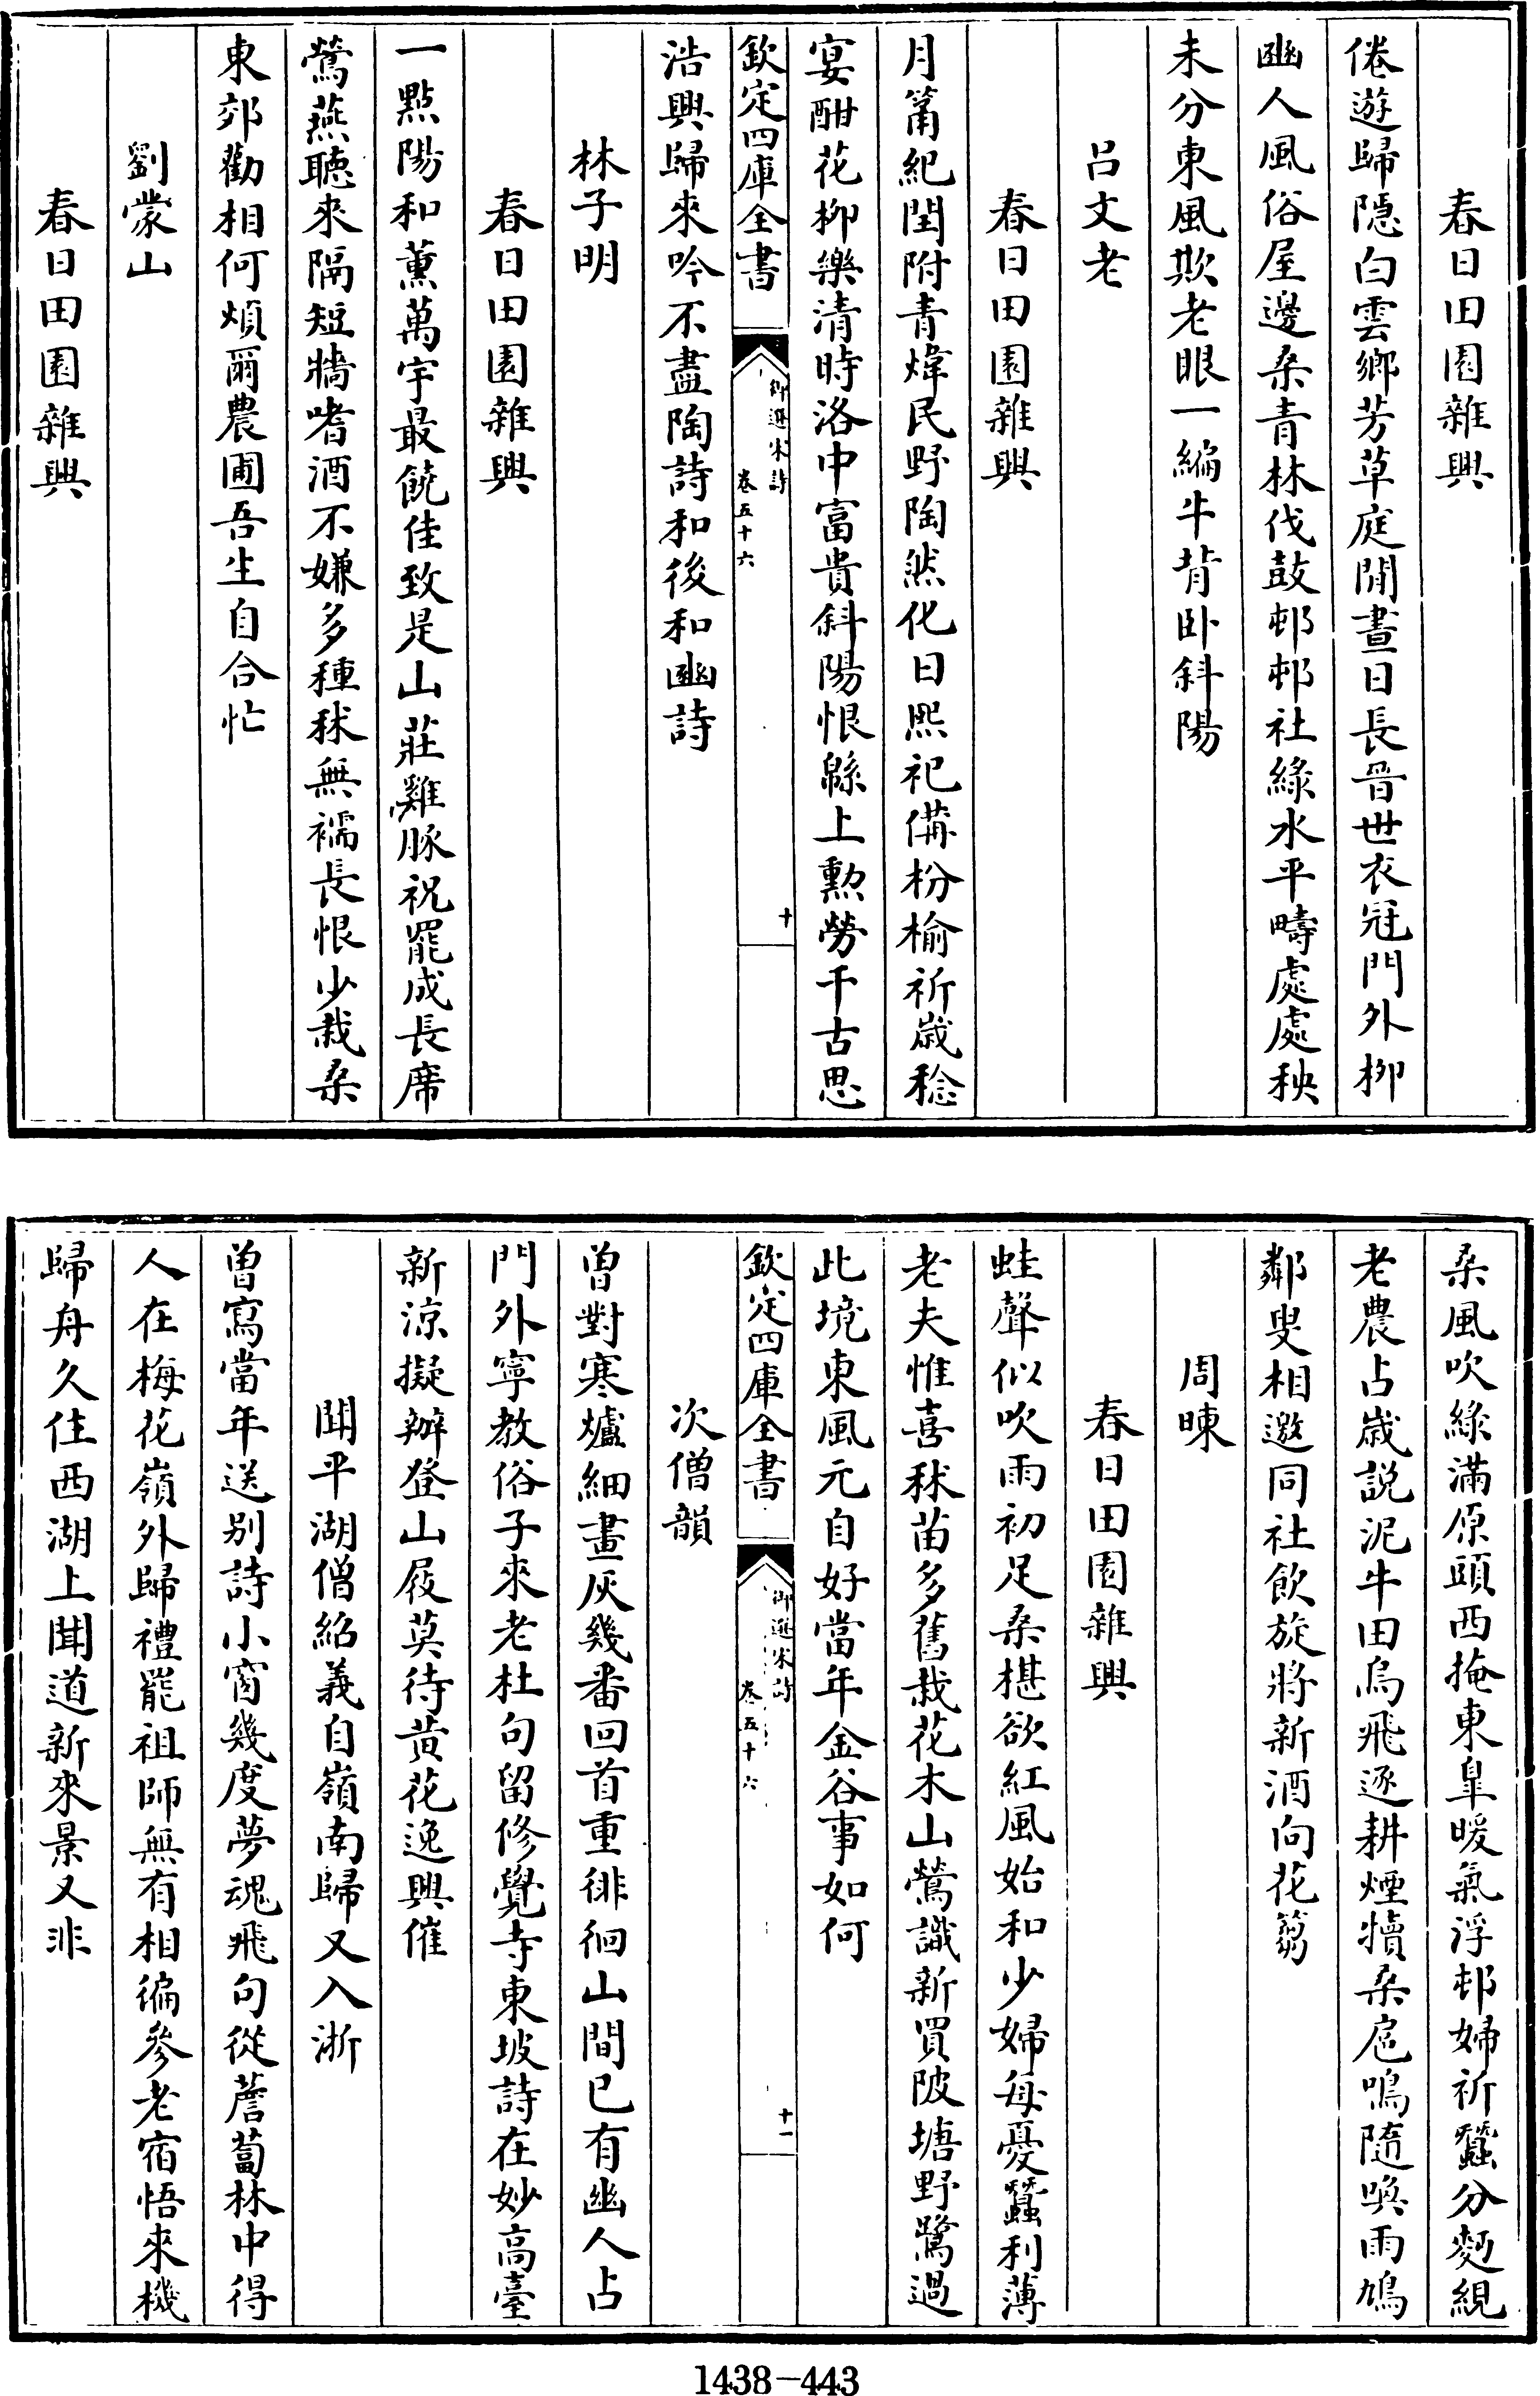 春日田園雜興
倦遊歸隱白雲鄉芳草庭閒晝日長晉世衣冠門外柳
豳人風俗屋邊桑青林伐鼓邨邨社綠水平疇處處秧
未分東風欺老眼一編牛背卧斜陽
呂文老
春日田園雜興
月筩紀閏附青煒民野陶然化日熙祀備枌榆祈歲稔
宴酣花柳樂清時洛中富貴斜陽恨緜上勲勞千古思
欽定四庫全書
御選宋詩
卷五十六
十
浩興歸來吟不盡陶詩和後和豳詩
林子明
春日田園雜興
一點陽和薰萬宇最饒佳致是山莊雞豚祝罷成長席
鶯燕聽來隔短牆嗜酒不嫌多種秫無襦長恨少栽桑
東郊勸相何煩爾農圃吾生自合忙
劉蒙山
春日田園雜興
桑風吹綠滿原頭西掩東皐暖氣浮邨婦祈蠶分麪繭
老農占歲説泥牛田烏飛逐耕煙犢桑扈鳴隨喚雨鳩
鄰叟相邀同社飲旋將新酒向花篘
周暕
春日田園雜興
蛙聲似吹雨初足桑椹欲紅風始和少婦每憂蠶利薄
老夫惟喜秫苗多舊栽花木山鶯識新買陂塘野鷺過
此境東風元自好當年金谷事如何
欽定四庫全書
御選宋詩
卷五十六
十一
次僧韻
曽對寒爐細畫灰幾番回首重徘徊山間已有幽人占
門外寧教俗子來老杜句留修覺寺東坡詩在妙高臺
新涼擬辦登山屐莫待黄花逸興催
聞平湖僧紹義自嶺南歸又入浙
曽寫當年送别詩小窗幾度夢魂飛句從薝蔔林中得
人在梅花嶺外歸禮罷祖師無有相徧參老宿悟來機
歸舟久住西湖上聞道新來景又非
1438—443